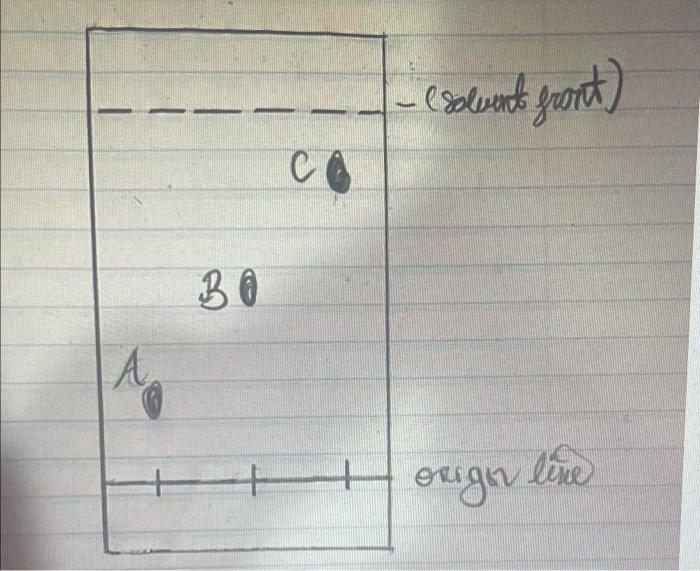 - (solvent front)
C
B
A
origin line